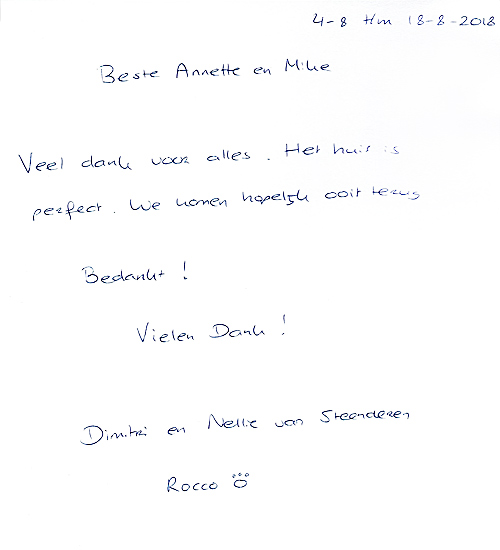 4-8 t/m 18-8-2018
Beste Annette en Mike
Veel dank voor alles. Het huis is
perfect. We komen hopelijk ooit terug
Bedankt!
Vielen Dank!
Dimitri en Nellie van Steenderen
Rocco